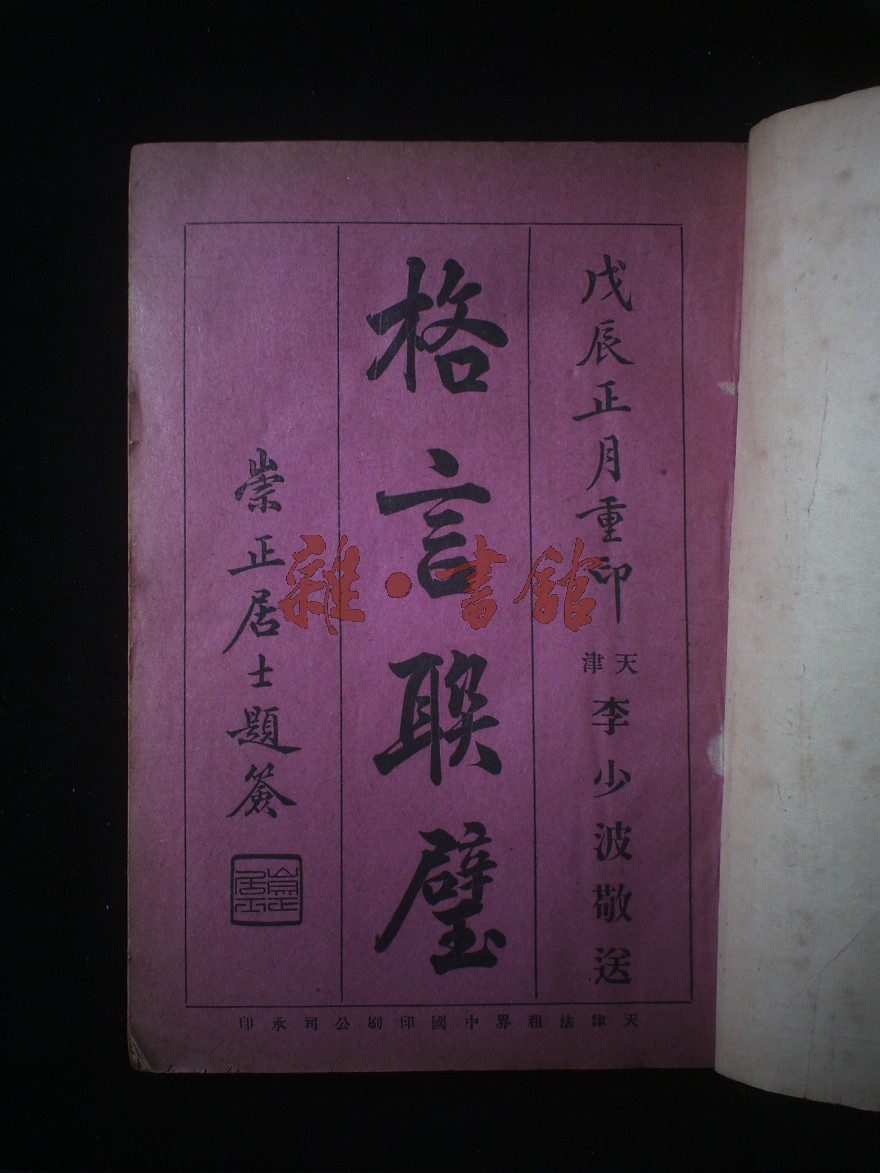 戊辰正月重印
天津
李少波敬送
格言聯璧
崇正居士題簽
崇正居士
天津法租界中國印刷公司承印
雜·書館